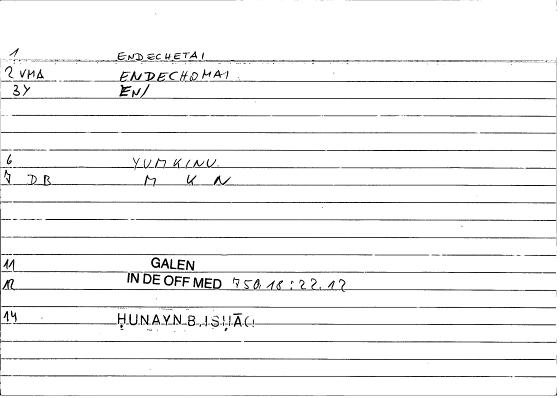 1 ENDECHETAI
2 VMA ENDECHOMAI
3Y EN/
6 YUMKINU
7 DB M K N
11 GALEN
12 IN DE OFF MED 750.18:22.12
14 ḤUNAYN B. ISḤĀQ